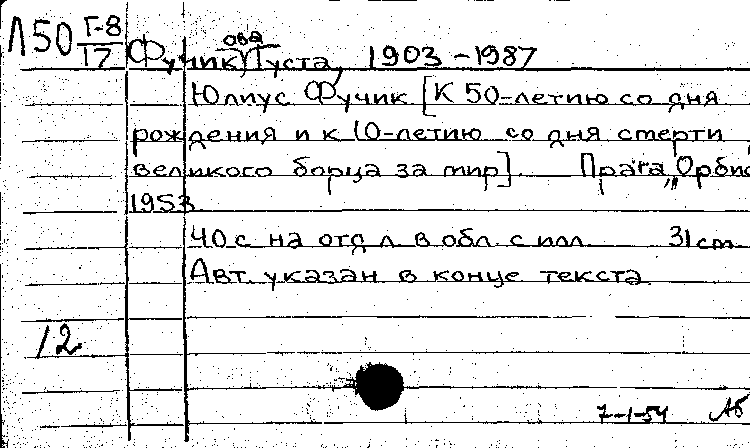 Л50 Г-8
17
Фучик(ова) Густа, 1903-1987
Юлиус Фучик [К 50-летию со дня
рождения и к 10-летию со дня смерти
великого борца за мир]. Прага, „Орбис
1953.
40 с на отд л. в обл. с илл. 31 cm
Авт. указан в конце текста
12.
7-1-54 АБ